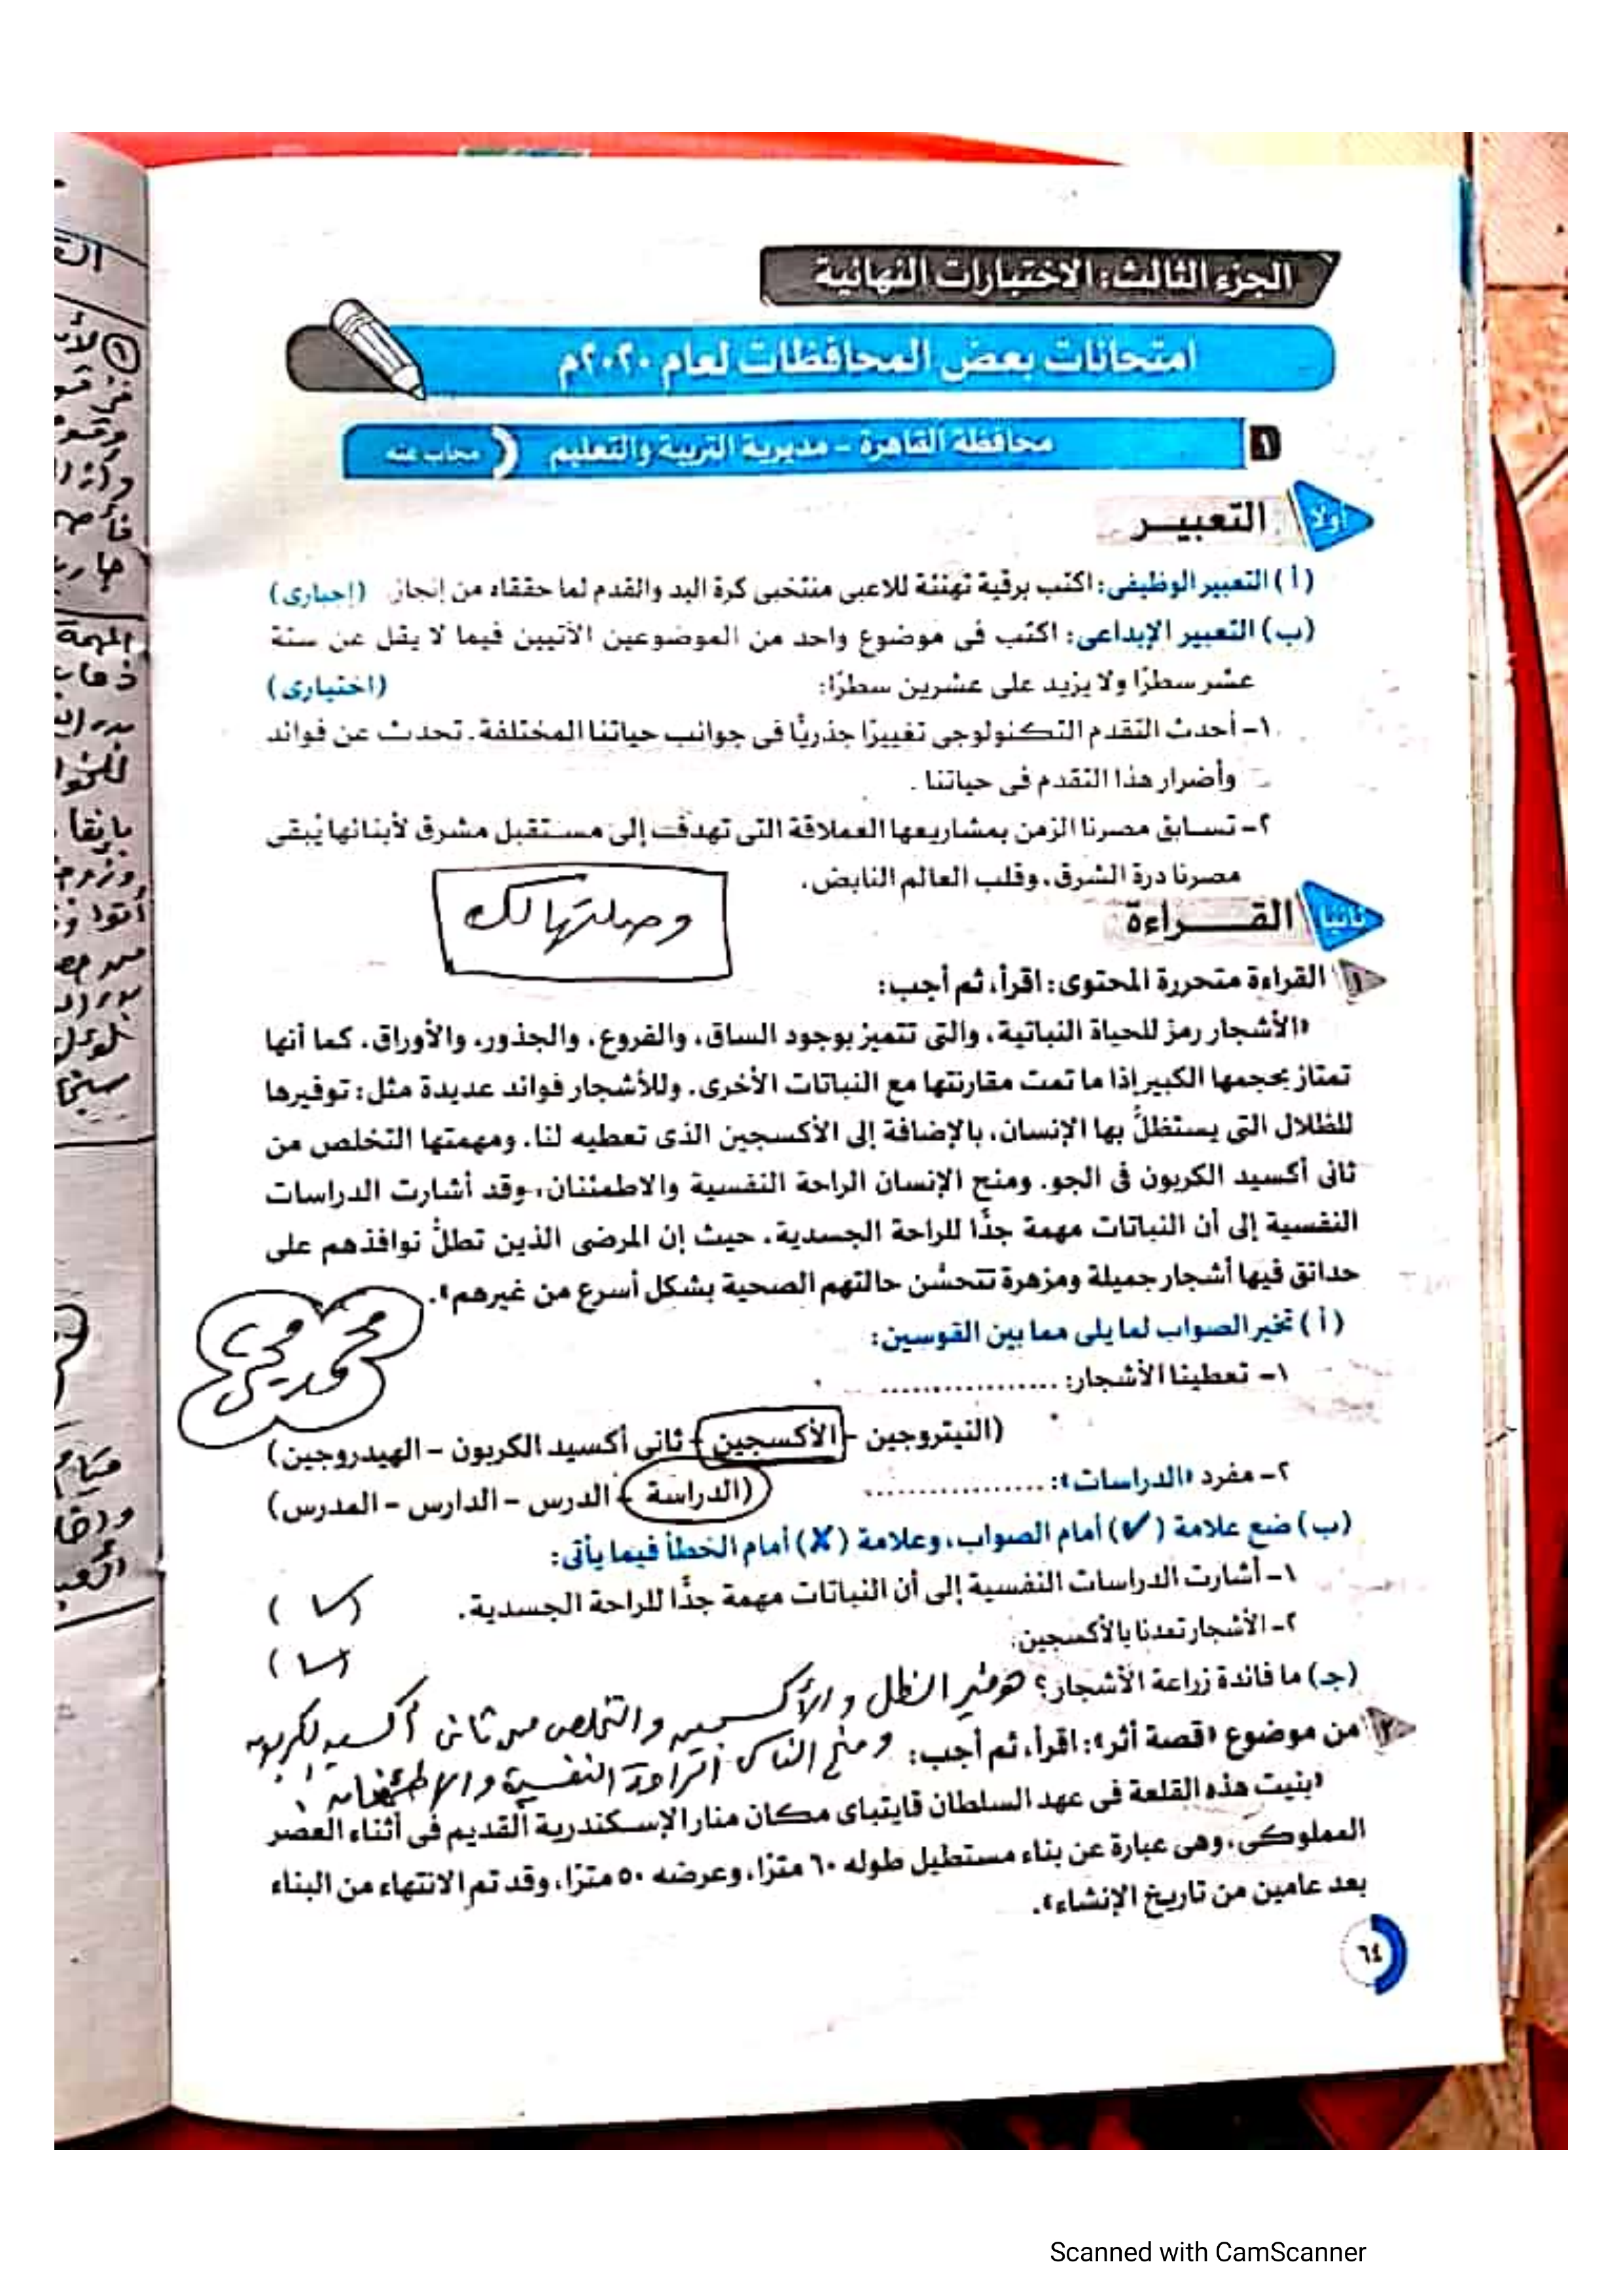 الجزء الثالث: الاختبارات النهائية
امتحانات بعض المحافظات لعام ٢٠٢٠م
١ محافظة القاهرة - مديرية التربية والتعليم مجاب عنه
أولا التعبيـر
(أ) التعبير الوظيفى: اكتب برقية تهنئة للاعبى منتخبى كرة اليد والقدم لما حققاه من إنجاز. (إجبارى)
(ب) التعبير الإبداعى: اكتب فى موضوع واحد من الموضوعين الآتيين فيما لا يقل عن ستة
عشر سطرًا ولا يزيد على عشرين سطرًا: (اختيارى)
١- أحدث التقدم التكنولوجى تغييرًا جذريًّا فى جوانب حياتنا المختلفة. تحدث عن فوائد
وأضرار هذا التقدم فى حياتنا.
٢- تسابق مصرنا الزمن بمشاريعها العملاقة التى تهدف إلى مستقبل مشرق لأبنائها يُبقى
مصرنا درة الشرق، وقلب العالم النابض.
وصلتها لك
ثانيا القـــراءة
١ القراءة متحررة المحتوى: اقرأ، ثم أجب:
«الأشجار رمز للحياة النباتية، والتى تتميز بوجود الساق، والفروع، والجذور، والأوراق. كما أنها
تمتاز بحجمها الكبير إذا ما تمت مقارنتها مع النباتات الأخرى. وللأشجار فوائد عديدة مثل: توفيرها
للظلال التى يستظلُّ بها الإنسان، بالإضافة إلى الأكسجين الذى تعطيه لنا. ومهمتها التخلص من
ثانى أكسيد الكربون فى الجو. ومنح الإنسان الراحة النفسية والاطمئنان، وقد أشارت الدراسات
النفسية إلى أن النباتات مهمة جدًّا للراحة الجسدية. حيث إن المرضى الذين تطلُّ نوافذهم على
حدائق فيها أشجار جميلة ومزهرة تتحسَّن حالتهم الصحية بشكل أسرع من غيرهم».
(أ) تخير الصواب لما يلى مما بين القوسين:
محمد محى
١- تعطينا الأشجار: ..................
(النيتروجين - الأكسجين - ثانى أكسيد الكربون - الهيدروجين)
٢- مفرد «الدراسات»: ..................
(الدراسة - الدرس - الدارس - المدرس)
(ب) ضع علامة (✓) أمام الصواب، وعلامة (✗) أمام الخطأ فيما يأتى:
١- أشارت الدراسات النفسية إلى أن النباتات مهمة جدًّا للراحة الجسدية. (✓)
٢- الأشجار تمدنا بالأكسجين. (✓)
(جـ) ما فائدة زراعة الأشجار؟ توفير الظل والأكسجين والتخلص من ثانى أكسيد الكربون
ومنح الناس الراحة النفسية والاطمئنان.
٢ من موضوع «قصة أثر»: اقرأ، ثم أجب:
«بنيت هذه القلعة فى عهد السلطان قايتباى مكان منار الإسكندرية القديم فى أثناء العصر
المملوكى، وهى عبارة عن بناء مستطيل طوله ٦٠ مترًا، وعرضه ٥٠ مترًا، وقد تم الانتهاء من البناء
بعد عامين من تاريخ الإنشاء».
٦٤
Scanned with CamScanner